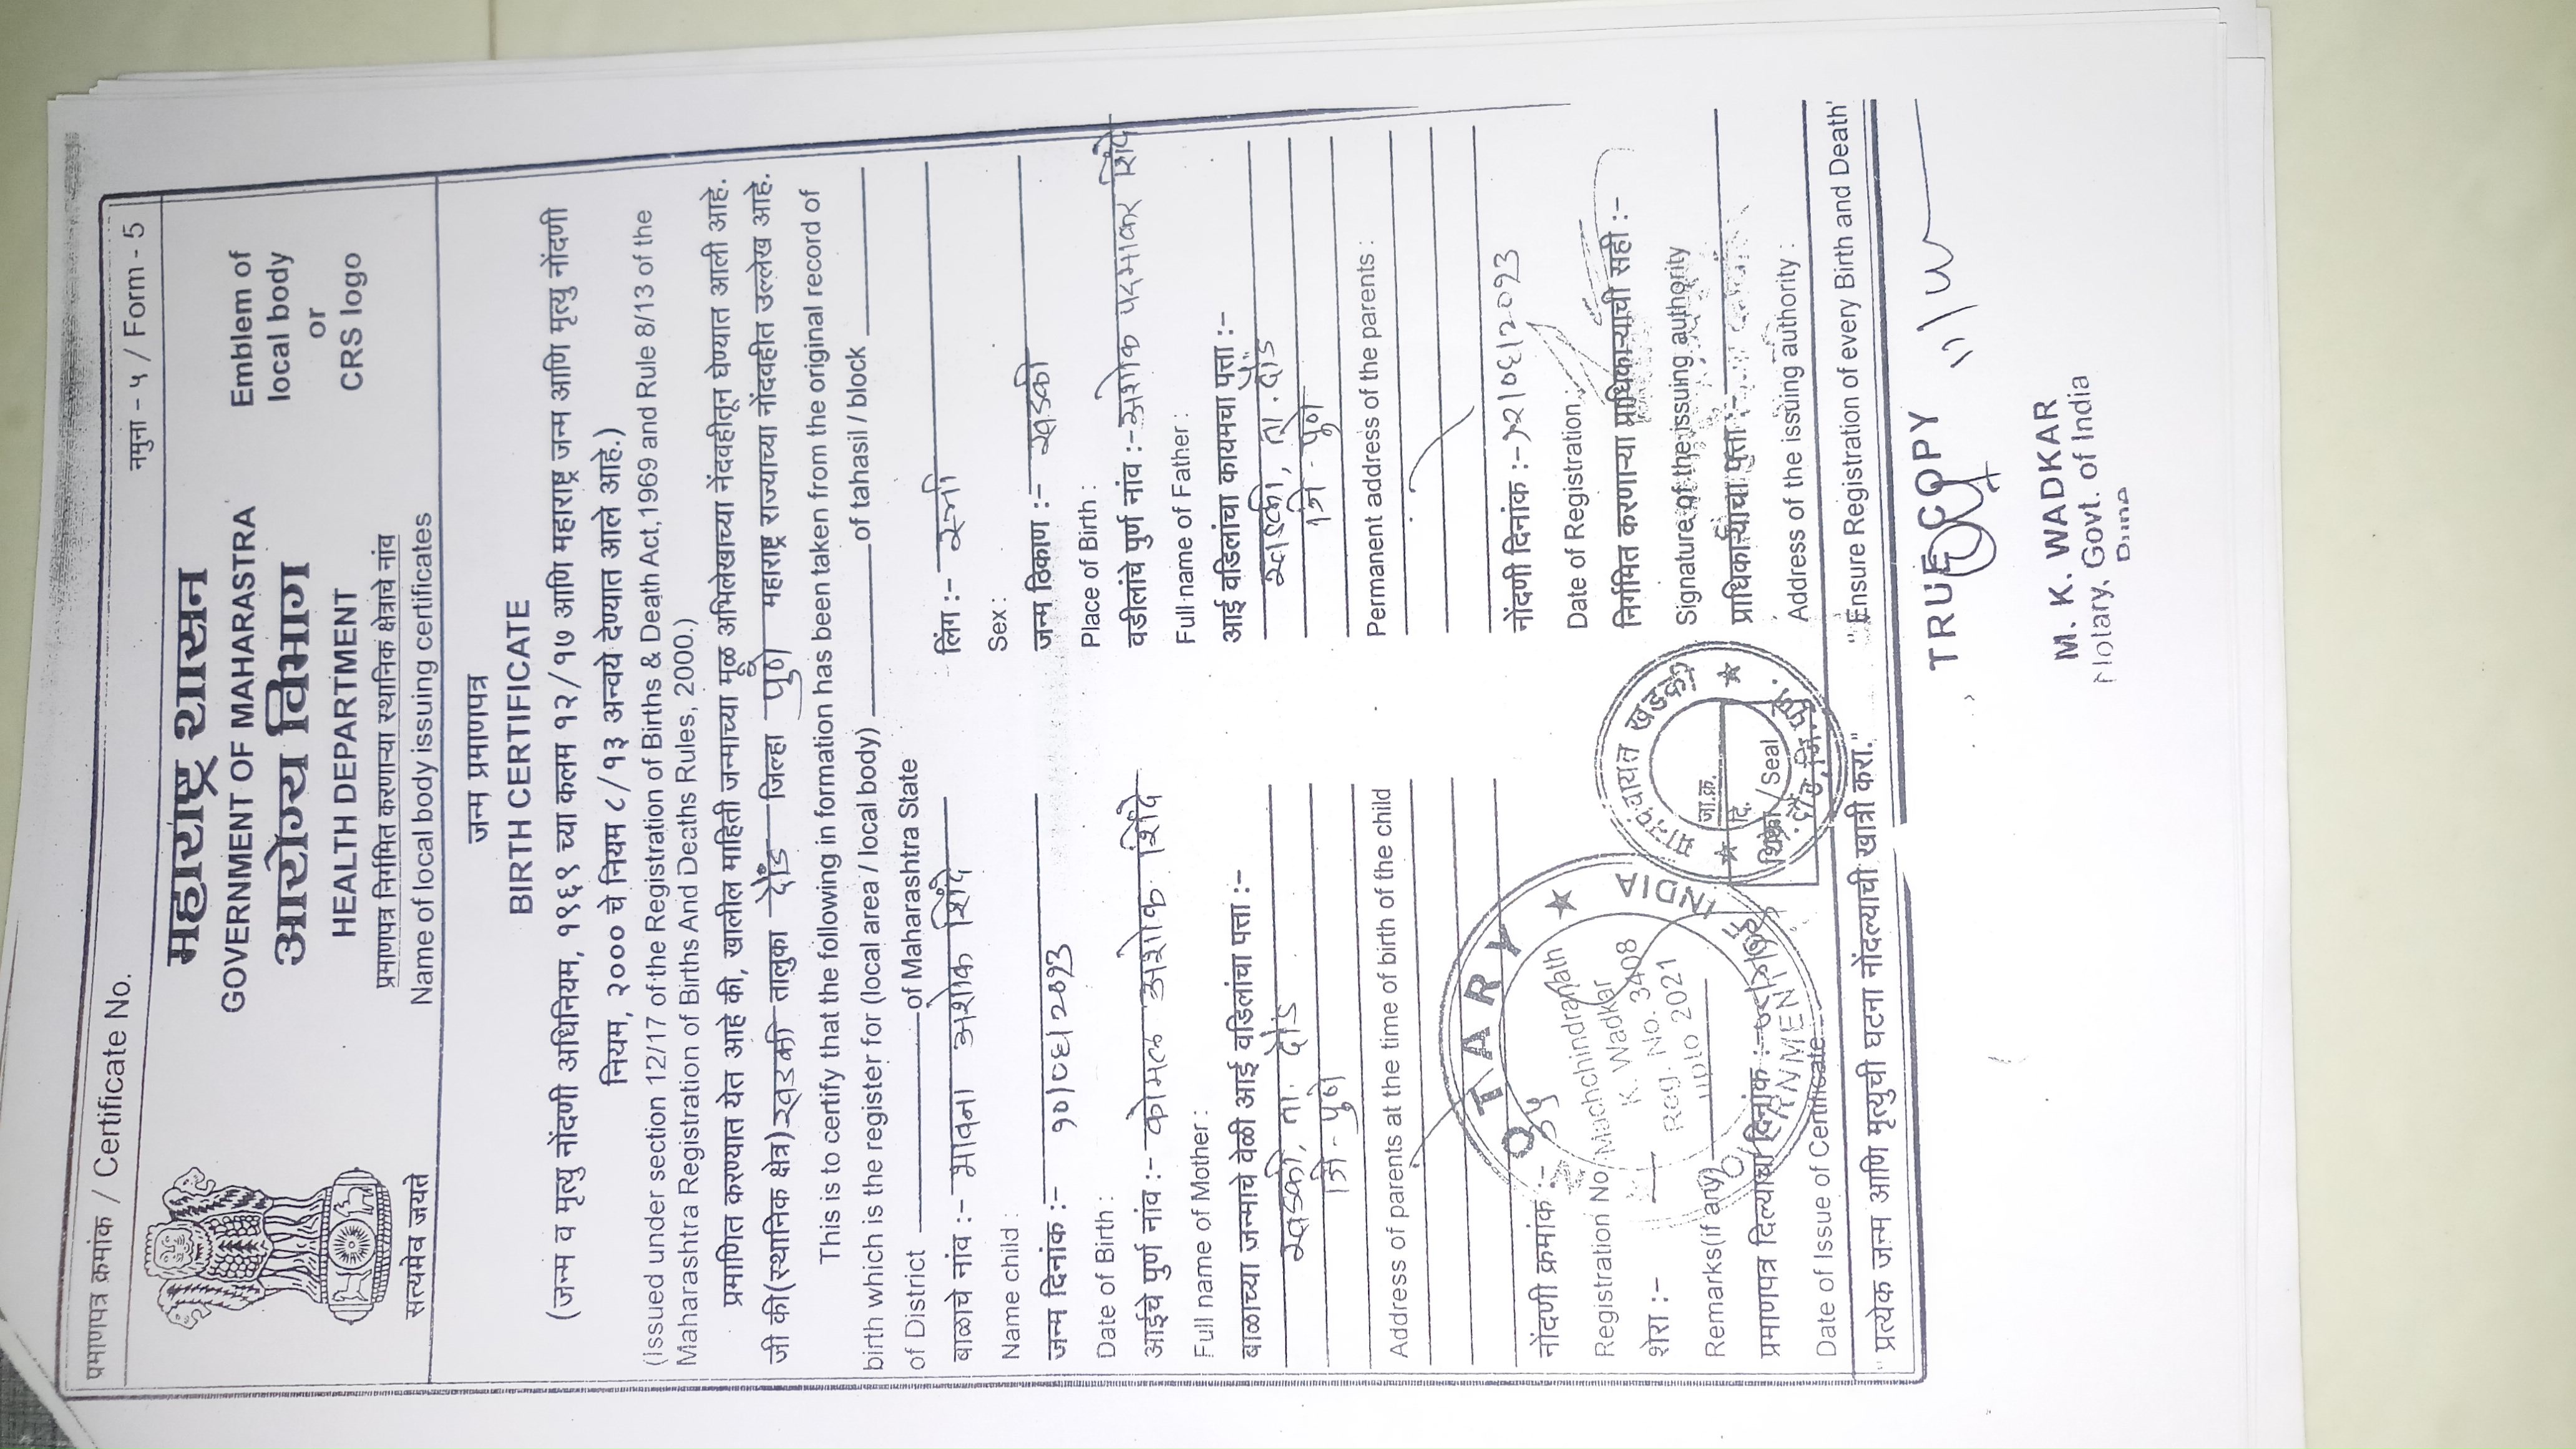 प्रमाणपत्र क्रमांक / Certificate No. नमुना - ५ / Form - 5
महाराष्ट्र शासन
GOVERNMENT OF MAHARASTRA
आरोग्य विभाग
HEALTH DEPARTMENT
Emblem of
local body
or
CRS logo
सत्यमेव जयते
प्रमाणपत्र निर्गमित करणाऱ्या स्थानिक क्षेत्राचे नांव
Name of local body issuing certificates
जन्म प्रमाणपत्र
BIRTH CERTIFICATE
(जन्म व मृत्यु नोंदणी अधिनियम, १९६९ च्या कलम १२/१७ आणि महाराष्ट्र जन्म आणि मृत्यु नोंदणी
नियम, २००० चे नियम ८/१३ अन्वये देण्यात आले आहे.)
(Issued under section 12/17 of the Registration of Births & Death Act, 1969 and Rule 8/13 of the
Maharashtra Registration of Births And Deaths Rules, 2000.)
प्रमाणित करण्यात येत आहे की, खालील माहिती जन्माच्या मूळ अभिलेखाच्या नोंदवहीतून घेण्यात आली आहे.
जी की (स्थानिक क्षेत्र) खडकी तालुका दौंड जिल्हा पुणे महाराष्ट्र राज्याच्या नोंदवहीत उल्लेख आहे.
This is to certify that the following in formation has been taken from the original record of
birth which is the register for (local area / local body) of tahasil / block
of District of Maharashtra State
बाळाचे नांव :- भावना अशोक शिंदे लिंग :- स्त्री
Name child : Sex :
जन्म दिनांक :- १०/०६/२०१३ जन्म ठिकाण :- खडकी
Date of Birth : Place of Birth :
आईचे पुर्ण नांव :- कोमल अशोक शिंदे वडीलांचे पुर्ण नांव :- अशोक पदमाकर शिंदे
Full name of Mother : Full name of Father :
बाळाच्या जन्माचे वेळी आई वडिलांचा पत्ता :- आई वडिलांचा कायमचा पत्ता :-
खडकी, ता. दौंड खडकी, ता. दौंड
जि - पुणे जि - पुणे
Address of parents at the time of birth of the child Permanent address of the parents :
नोंदणी क्रमांक :- ३५ नोंदणी दिनांक :- १२/०६/२०१३
Registration No. Date of Registration :
शेरा :- निर्गमित करणाऱ्या प्राधिकाऱ्याची सही :-
Remarks(if any) Signature of the issuing authority
प्रमाणपत्र दिल्याचा दिनांक :- प्राधिकाऱ्याचा पत्ता :-
Date of Issue of Certificate Address of the issuing authority :
NOTARY
Machchindranath
K. Wadkar
Reg. No. 3408
upto 2021
INDIA
ग्रामपंचायत खडकी
जा.क्र.
दि.
शिक्का / Seal
दौंड, जि. पुणे.
"प्रत्येक जन्म आणि मृत्युची घटना नोंदल्याची खात्री करा." "Ensure Registration of every Birth and Death"
TRUE COPY
M. K. WADKAR
Notary, Govt. of India